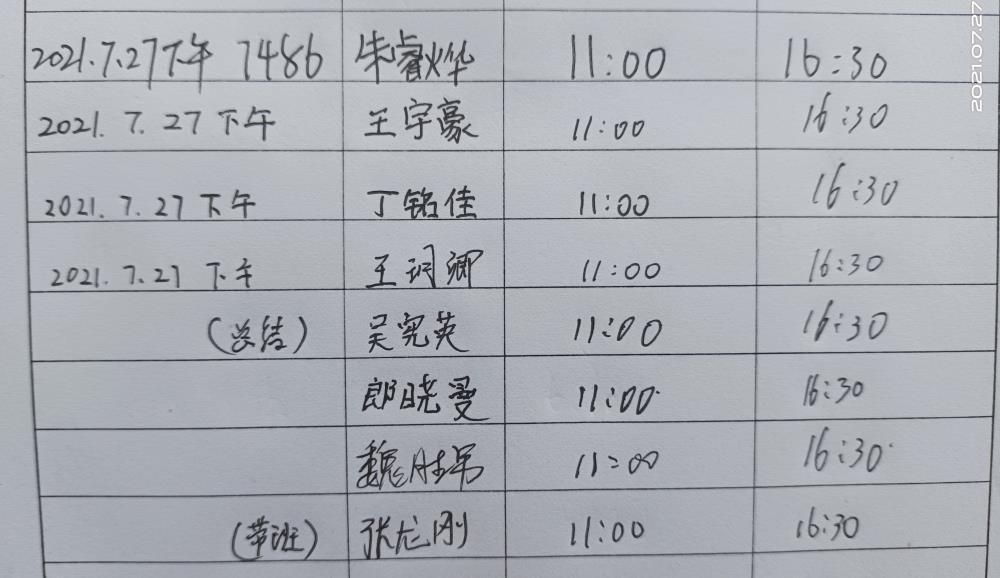 2021.7.27下午 7486 朱睿烨 11:00 16:30
2021.7.27下午 王宇豪 11:00 16:30
2021.7.27下午 丁铭佳 11:00 16:30
2021.7.27下午 王珂卿 11:00 16:30
(总结) 吴宪英 11:00 16:30
郎晓曼 11:00 16:30
魏胜军 11:00 16:30
(带班) 张龙刚 11:00 16:30
2021.07.27